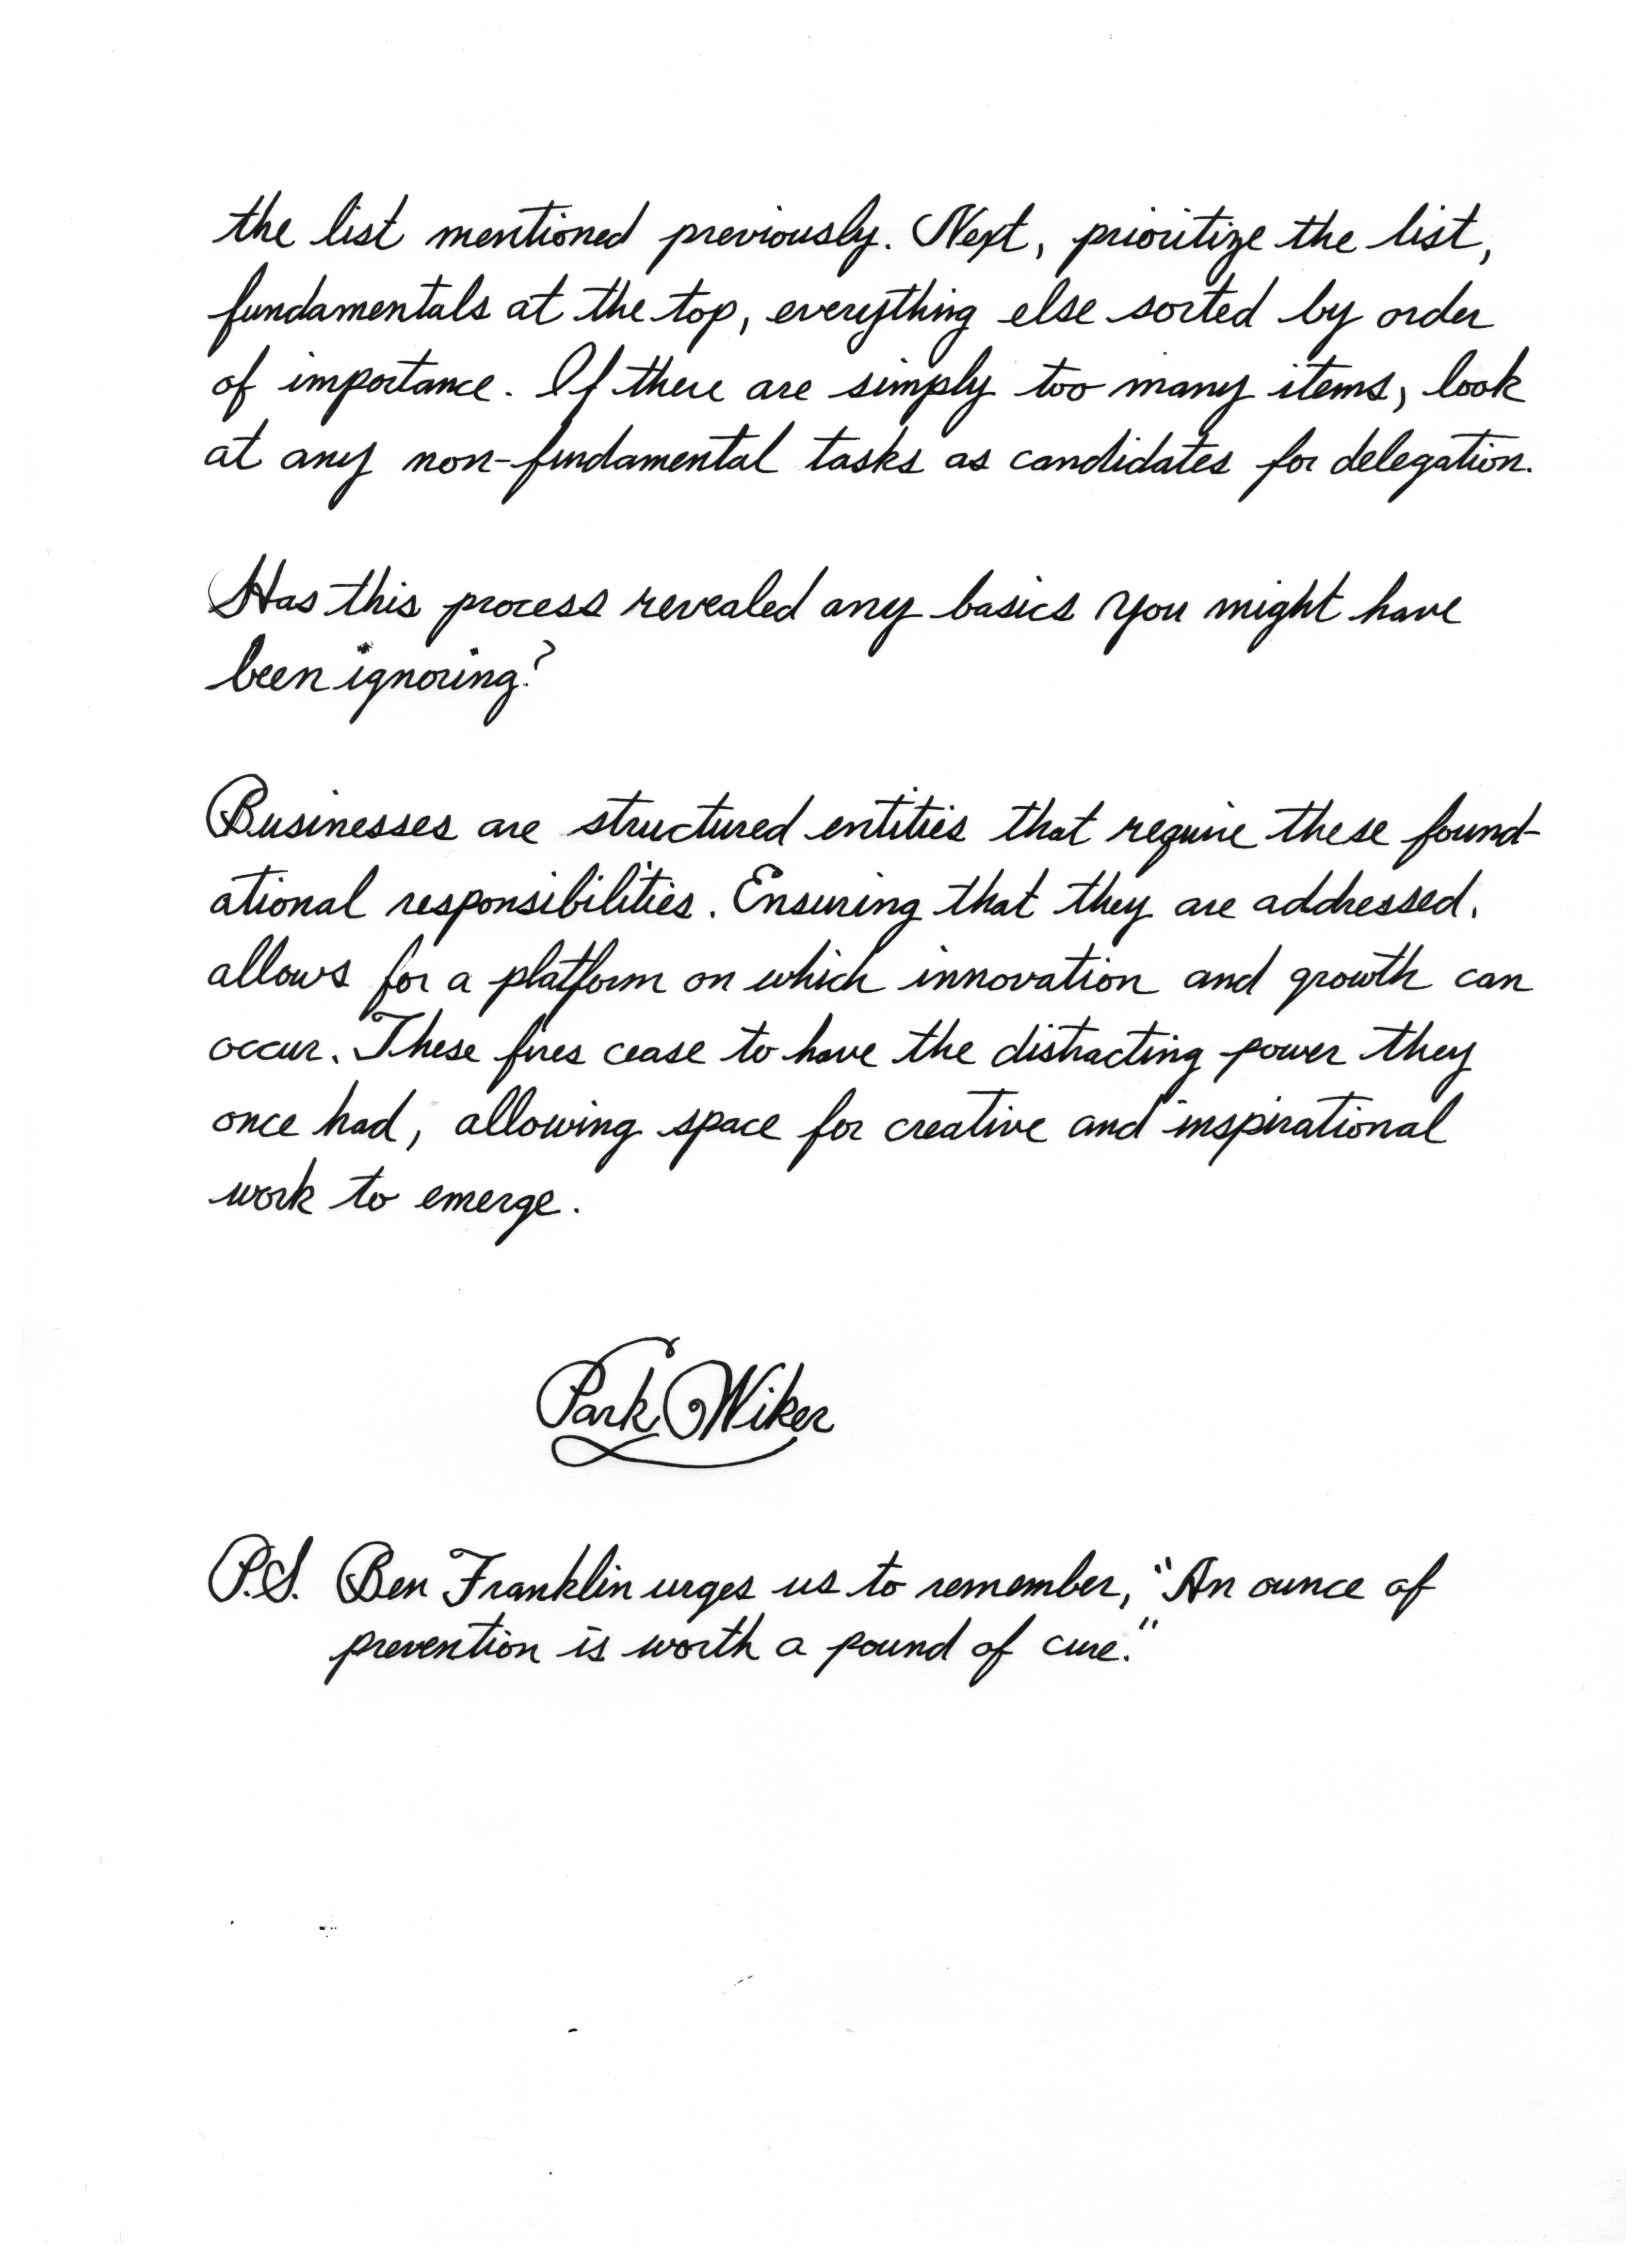 the list mentioned previously. Next, prioritize the list,
fundamentals at the top, everything else sorted by order
of importance. If there are simply too many items, look
at any non-fundamental tasks as candidates for delegation.
Has this process revealed any basics you might have
been ignoring?
Businesses are structured entities that require these found-
ational responsibilities. Ensuring that they are addressed,
allows for a platform on which innovation and growth can
occur. These fires cease to have the distracting power they
once had, allowing space for creative and inspirational
work to emerge.
Park Wiker
P.S. Ben Franklin urges us to remember, "An ounce of
prevention is worth a pound of cure."